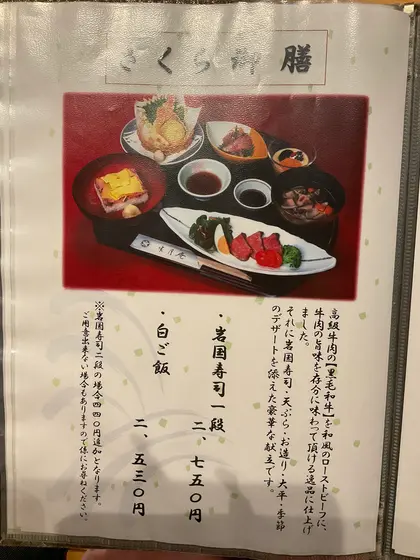 さくら御膳
高級牛肉の【黒毛和牛】を和風のローストビーフに、
牛肉の旨味を存分に味わって頂ける逸品に仕上げ
ました。
それに岩国寿司・天ぷら・お造り・大平・季節
のデザートを添えた豪華な献立です。
・岩国寿司一段　二、七五〇円
・白ご飯　二、五三〇円
※岩国寿司二段の場合四四〇円追加となります。
ご用意出来ない場合もありますので係にお尋ねください。